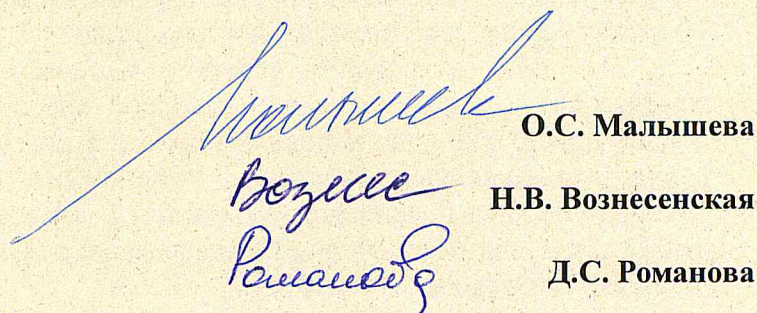 Малышев О.С. Малышева
Вознес Н.В. Вознесенская
Романова Д.С. Романова